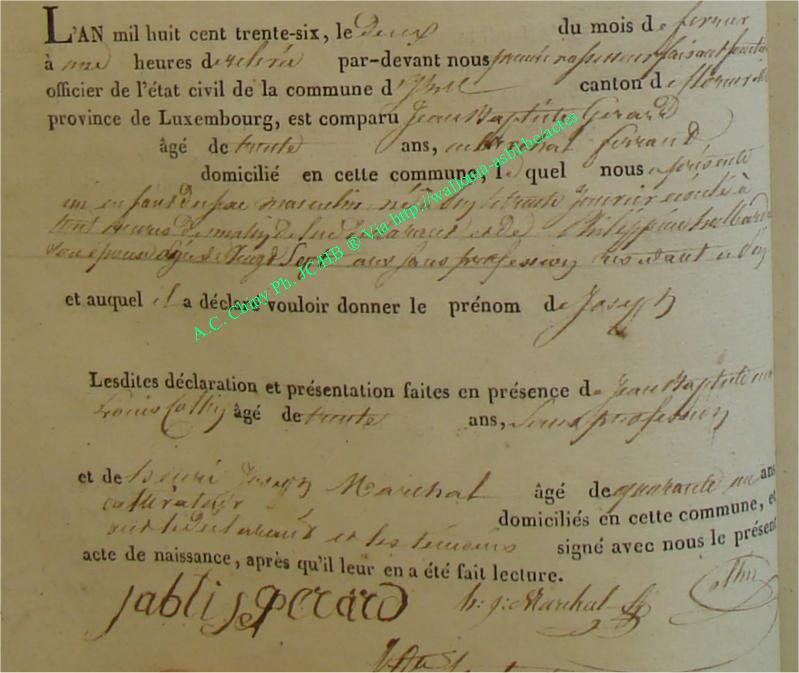 L'AN mil huit cent trente-six, le deux du mois de fevrier
à une heures de relevée par-devant nous premier assesseur faisant
officier de l'état civil de la commune d' canton de florenville
province de Luxembourg, est comparu Jean Baptiste Gerard
âgé de trente ans, marechal ferrand
domicilié en cette commune, le quel nous a présenté
un enfant du sexe masculin né à le trente Janvier à
trois heures du matin de lui déclarant et de Philippine
son épouse âgée de vingt sept ans sans profession residant à
et auquel il a déclaré vouloir donner le prénom de Joseph
Lesdites déclaration et présentation faites en présence de Jean Baptiste
Louis âgé de trente ans, sans profession
et de henri Joseph Marchal âgé de quarante un ans
cultivateur domiciliés en cette commune, et
ont le déclarant et les témoins signé avec nous le présent
acte de naissance, après qu'il leur en a été fait lecture.
gerard h: j: Marchal
A.C. Chiny Ph. JC HB ® Via http://wallonia-asbl.be/actes